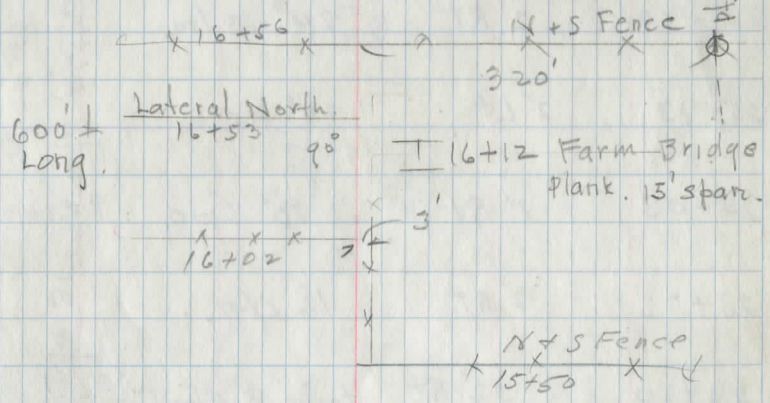 16+56
N + S Fence
320'
Lateral North.
600'±
Long.
16+53
90°
16+12 Farm Bridge
Plank. 15' span.
3'
16+02
N + S Fence
15+50